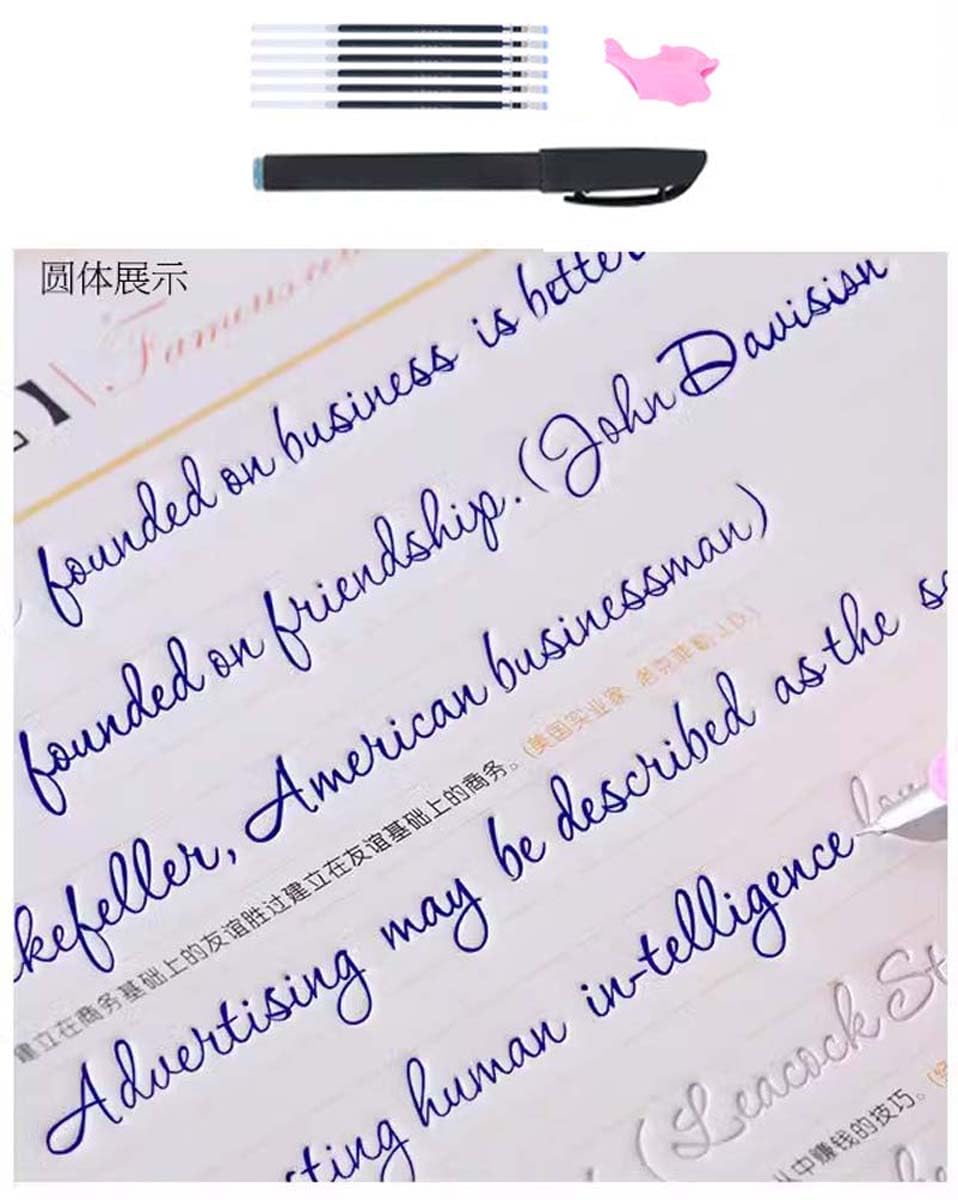 圆体展示
Famous
founded on business is better
founded on friendship. (John Davisisn
kefeller, American businessman)
建立在商务基础上的友谊胜过建立在友谊基础上的商务。(美国实业家 洛克菲勒.J.D.)
Advertising may be described as the sc
ting human in-telligence
(Leacock St
中赚钱的技巧。